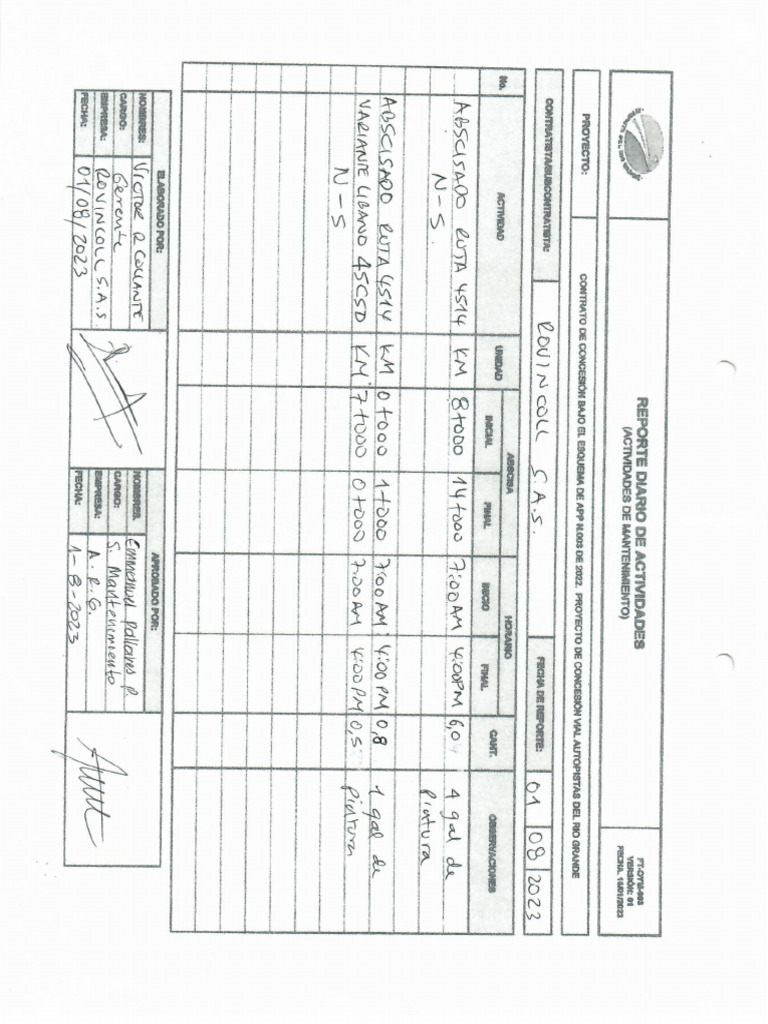 REPORTE DIARIO DE ACTIVIDADES
(ACTIVIDADES DE MANTENIMIENTO)
FT-OYM-003
VERSIÓN: 01
FECHA. 16/01/2023
PROYECTO: CONTRATO DE CONCESIÓN BAJO EL ESQUEMA DE APP N.003 DE 2022. PROYECTO DE CONCESIÓN VIAL AUTOPISTAS DEL RIO GRANDE
CONTRATISTA/SUBCONTRATISTA: ROVINCOLL S.A.S. FECHA DE REPORTE: 01 08 2023
No. ACTIVIDAD UNIDAD ABSCISA HORARIO CANT. OBSERVACIONES
INICIAL FINAL INICIO FINAL
ABSCISADO RUTA 4514 KM 8+000 14+000 7:00 AM 4:00PM 6,0 4 gal de
N-S. pintura
ABSCISADO RUTA 4514 KM 0+000 1+000 7:00 AM 4:00 PM 0,8 1 gal de
VARIANTE LIBANO 45CSD KM 7+000 0+000 7:00 AM 4:00 PM 0,5 pintura
N-S
ELABORADO POR: APROBADO POR:
NOMBRES: VICTOR R COLLANTE NOMBRES. Emmanuel Pallares P.
CARGO: Gerente CARGO: S. Mantenimiento
EMPRESA: ROVINCOLL S.A.S. EMPRESA: A.R.G.
FECHA: 01/08/2023 FECHA: 1-8-2023